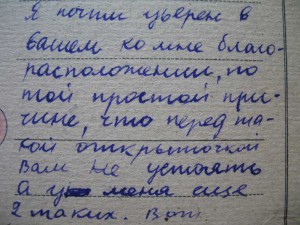 Я почти уверен в
вашем ко мне благо-
расположении, по
той простой при-
чине, что перед та-
кой открыточкой
Вам не устоять
а у меня еще
2 таких. Вот